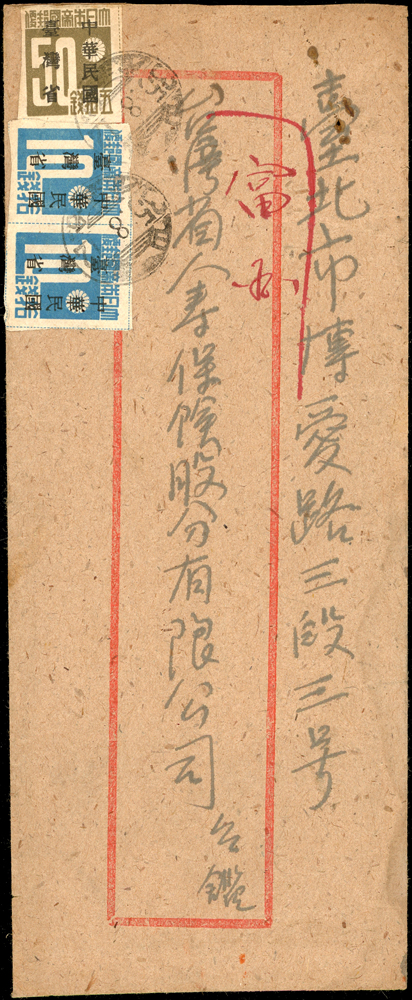 臺北市博愛路三段三号
富
台湾省人寿保険股分有限公司
台鑑
大日本帝國郵便
50
五拾錢
中華民國
臺灣省
大日本帝國郵便
10
拾錢
中華民國
臺灣省
大日本帝國郵便
10
拾錢
中華民國
臺灣省